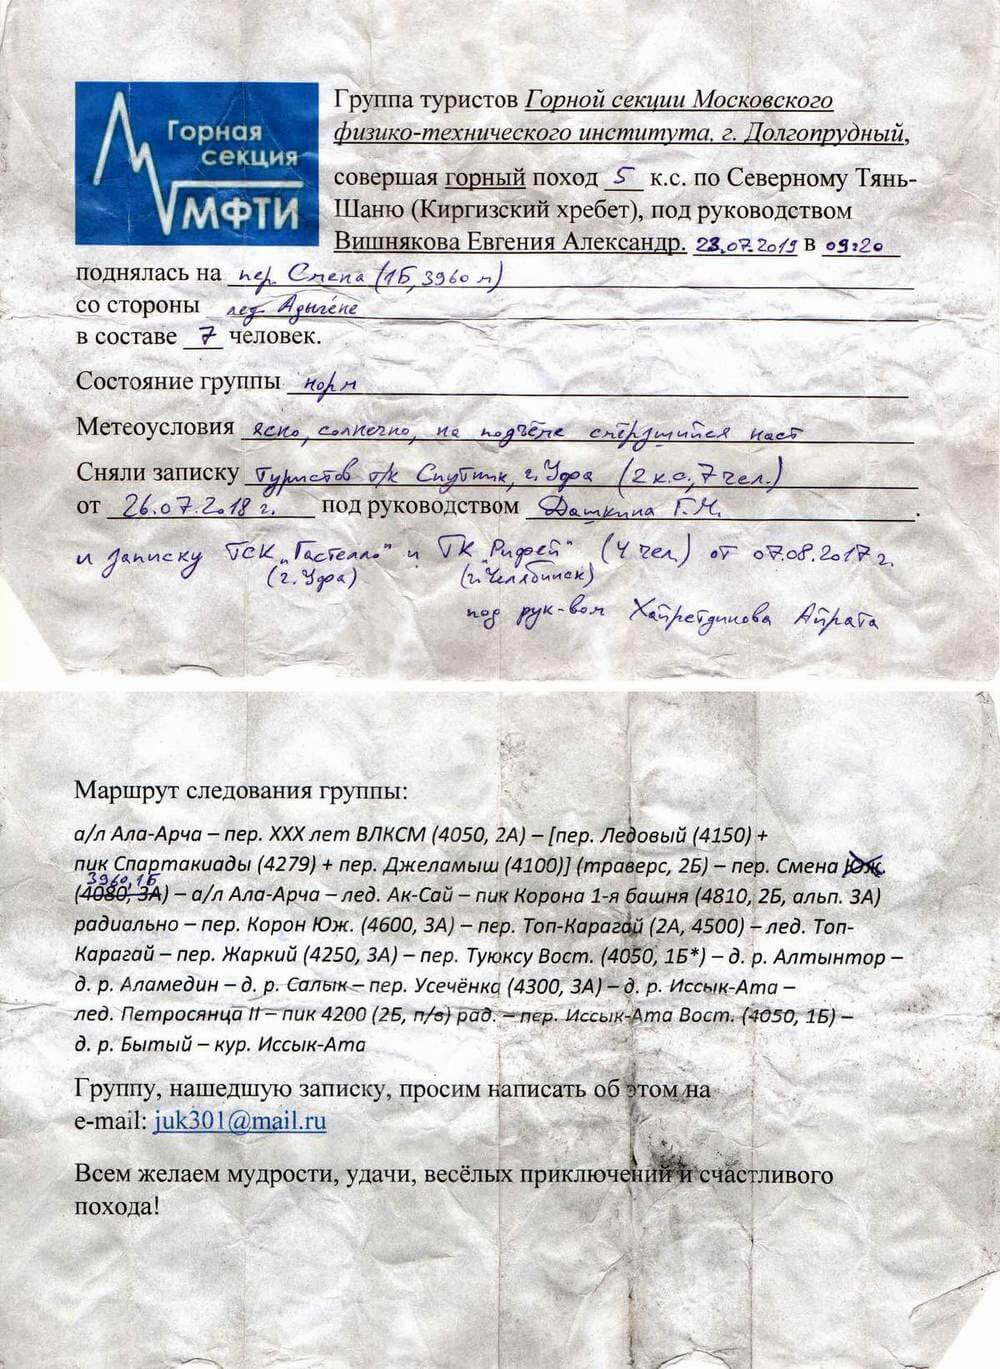 Горная
секция
МФТИ
Группа туристов Горной секции Московского
физико-технического института, г. Долгопрудный,
совершая горный поход 5 к.с. по Северному Тянь-
Шаню (Киргизский хребет), под руководством
Вишнякова Евгения Александр. 23.07.2019 в 09:20
поднялась на пер. Смена (1Б, 3960 м)
со стороны лед. Адыгене
в составе 7 человек.
Состояние группы норм
Метеоусловия ясно, солнечно, на подъёме наст
Сняли записку туристов т/к Спутник, г. Уфа (2 к.с., 7 чел.)
от 26.07.2018 г. под руководством Дашкина Г.М.
и записку ТСК „Гастелло" и ТК „Рифей" (4 чел.) от 07.08.2017 г.
(г. Уфа) (г. Челябинск)
под рук-вом Хайретдинова Айрата
Маршрут следования группы:
а/л Ала-Арча – пер. XXX лет ВЛКСМ (4050, 2А) – [пер. Ледовый (4150) +
пик Спартакиады (4279) + пер. Джеламыш (4100)] (траверс, 2Б) – пер. Смена Юж.
3960, 1Б
(4080, 3А) – а/л Ала-Арча – лед. Ак-Сай – пик Корона 1-я башня (4810, 2Б, альп. 3А)
радиально – пер. Корон Юж. (4600, 3А) – пер. Топ-Карагай (2А, 4500) – лед. Топ-
Карагай – пер. Жаркий (4250, 3А) – пер. Туюксу Вост. (4050, 1Б*) – д. р. Алтынтор –
д. р. Аламедин – д. р. Салык – пер. Усечёнка (4300, 3А) – д. р. Иссык-Ата –
лед. Петросянца II – пик 4200 (2Б, п/в) рад. – пер. Иссык-Ата Вост. (4050, 1Б) –
д. р. Бытый – кур. Иссык-Ата
Группу, нашедшую записку, просим написать об этом на
e-mail: juk301@mail.ru
Всем желаем мудрости, удачи, весёлых приключений и счастливого
похода!